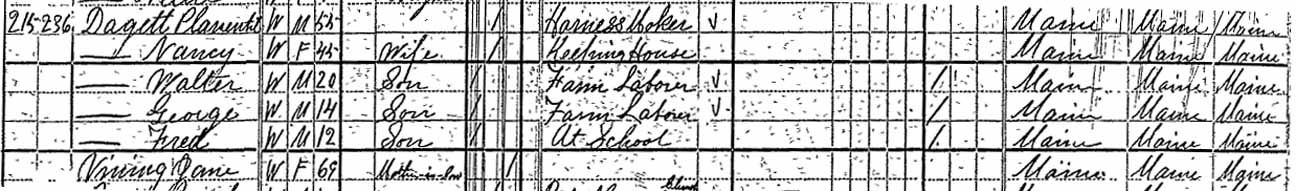 215 236 Dagett Plament W M 55 / Harness Maker ✓ Maine Maine Maine
— Nancy W F 45 Wife / Keeping House Maine Maine Maine
— Walter W M 20 Son / Farm Laborer ✓ / Maine Maine Maine
— George W M 14 Son / Farm Laborer ✓ / Maine Maine Maine
— Fred W M 12 Son / At School / Maine Maine Maine
Vining Jane W F 69 Mother-in-law / Maine Maine Maine